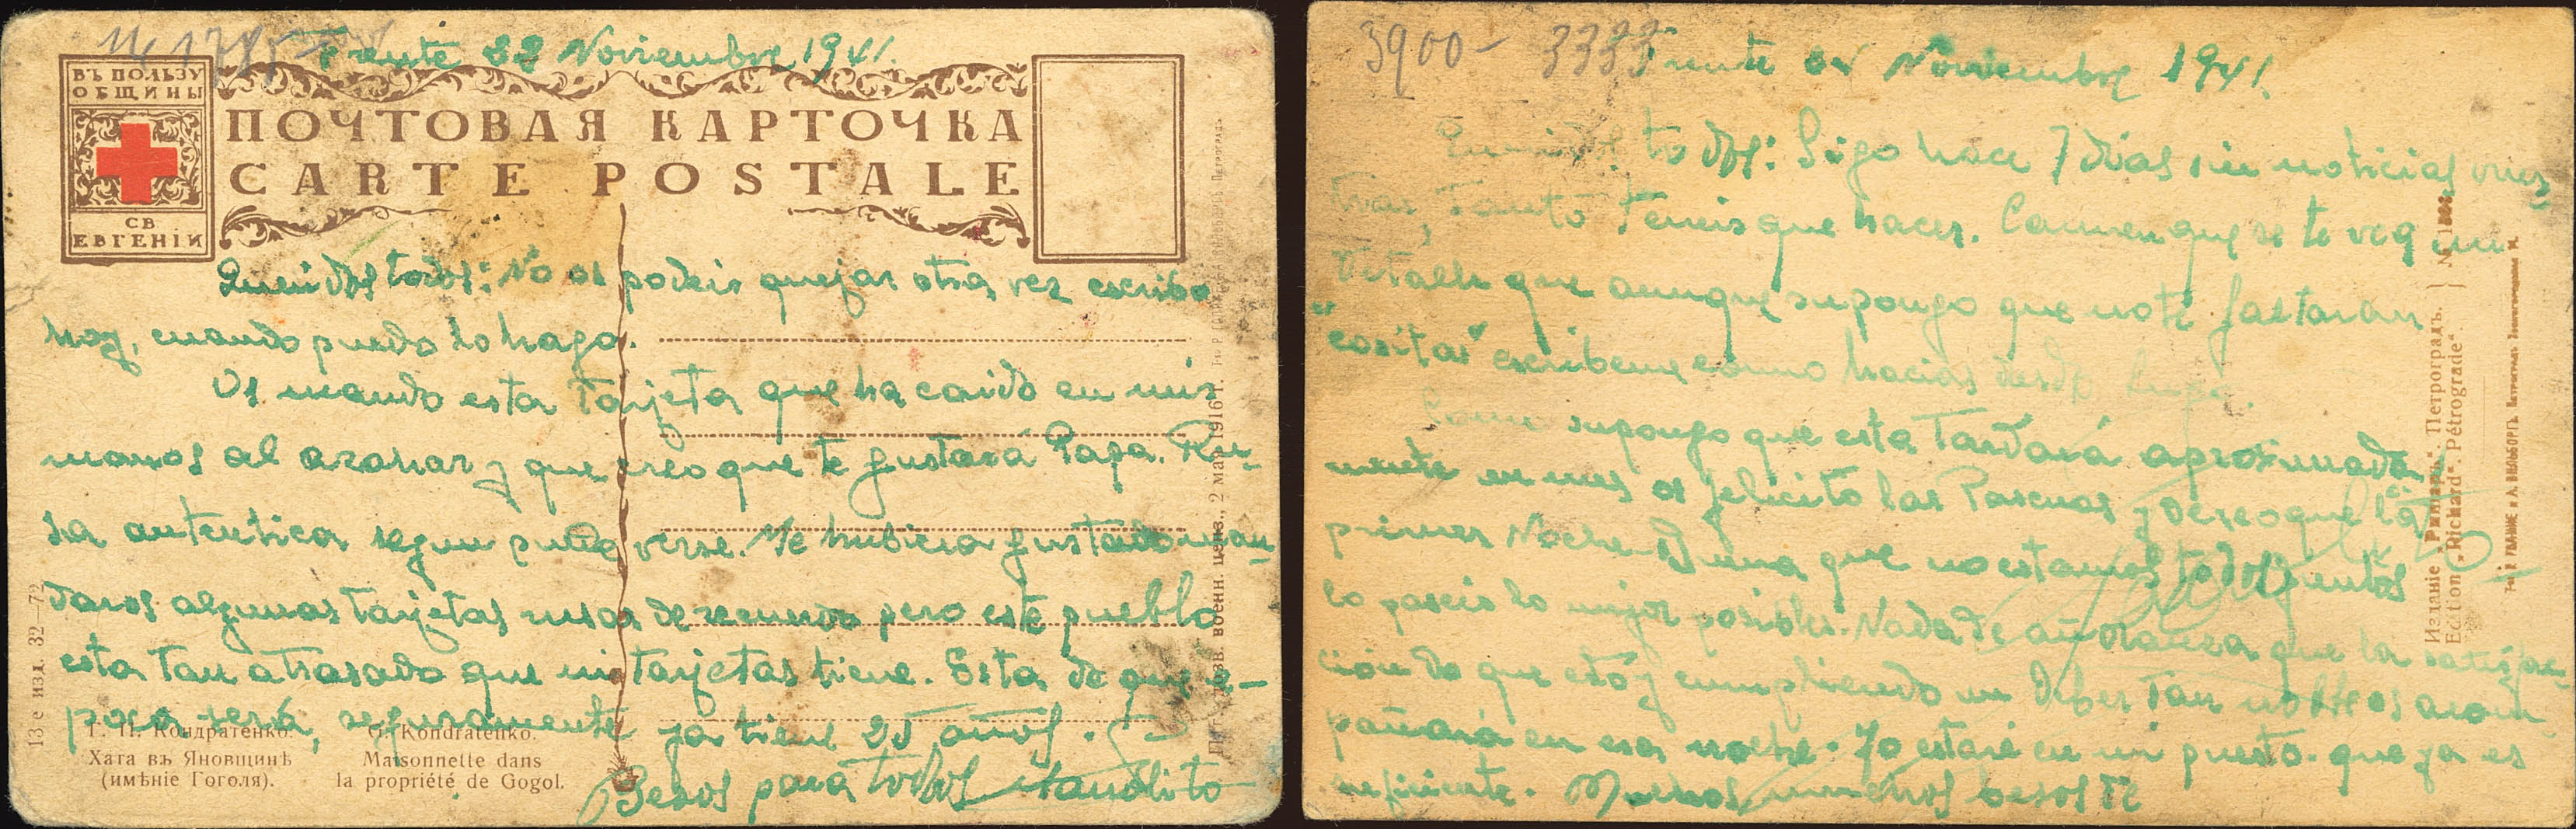 Frente 22 Noviembre 1941.
ВЪ ПОЛЬЗУ
ОБЩИНЫ
СВ
ЕВГЕНІИ
ПОЧТОВАЯ КАРТОЧКА
CARTE POSTALE
Queridos todos: No os podeis quejar otra vez escribo
hoy, cuando puedo lo hago.
Os mando esta tarjeta que ha caido en mis
manos al azahar y que creo que te gustará Papa. Ru-
sa autentica segun puede verse. Me hubiera gustado man-
daros algunas tarjetas rusas de recuerdo pero este pueblo
esta tan atrasado que ni tarjetas tiene. Esta de que e-
poca será, seguramente ya tiene 25 años.
Besos para todos Manolito
Г. П. Кондратенко.
Хата въ Яновщинѣ
(имѣніе Гоголя).
G. Kondratenko.
Maisonnette dans
la propriété de Gogol.
13-е изд. 32—72
военн. ценз., 2 мар. 1916 г.
3900 - 3333
Frente 24 Noviembre 1941.
Queridos todos: Sigo hace 7 dias sin noticias vues-
tras, Tanto teneis que hacer. Carmen que se te vea un
detalle que aunque supongo que no te faltaran
"cositas" escribeme como hacias desde
Como supongo que esta tardará aproximada
mente un mes os felicito las Pascuas y deseo que la
primer Noche-Buena que no estamos todos juntos
lo paseis lo mejor posible. Nada de añoranza que la satisfac-
ción de que estoy cumpliendo un deber tan noble os acom-
pañará en esa noche. Yo estaré en mi puesto que ya es
suficiente. Muchos, muchos besos de
Изданіе „Ришаръ“. Петроградъ.
Edition „Richard“. Pétrograde.